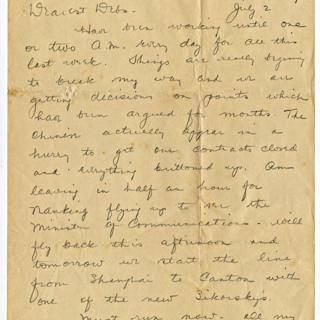 Dearest Debs. July 2
Have been working until one
or two A.M. every day for all this
last week. Things are really beginning
to break my way and we are
getting decisions on points which
have been argued for months. The
Chinese actually appear in a
hurry to get our contracts closed
and everything buttoned up. Am
leaving in half an hour for
Nanking flying up to see the
Minister of Communications - will
fly back this afternoon and
tomorrow we start the line
from Shanghai to Canton with
one of the new Sikorskys.
Must run now - all my